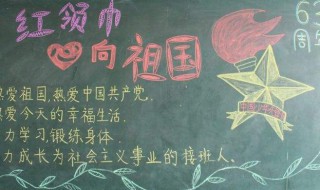 红领巾
心向祖国
63
周
热爱祖国,热爱中国共产党.
热爱今天的幸福生活.
力学习锻炼身体.
力成长为社会主义事业的接班人.